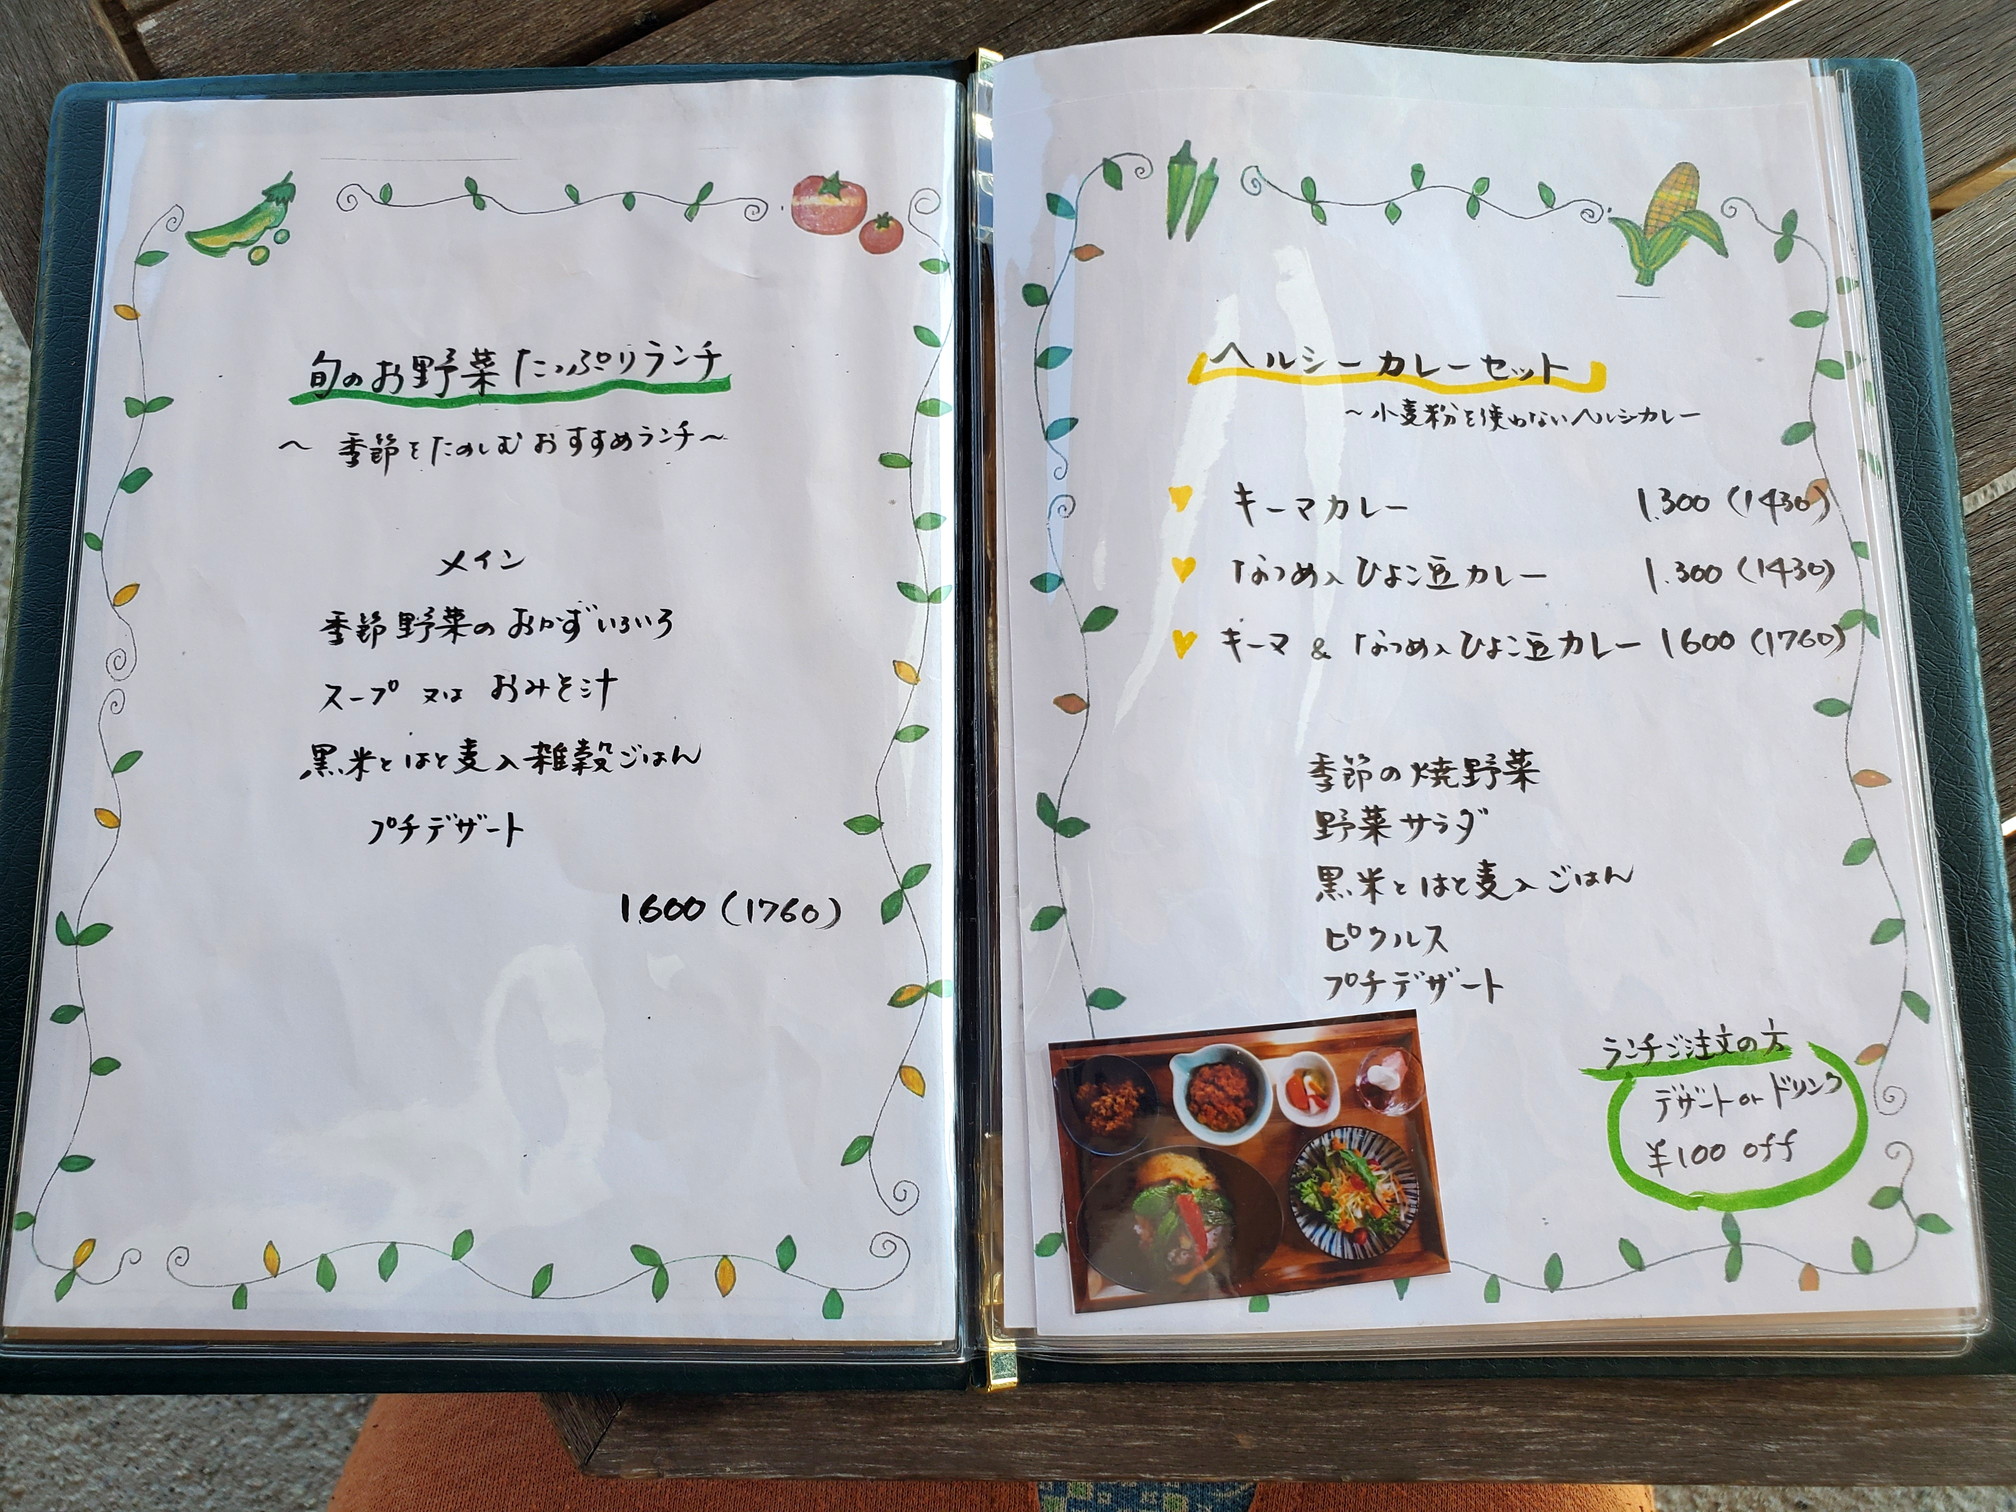 旬のお野菜たっぷりランチ
～ 季節をたのしむ おすすめランチ～
メイン
季節野菜の おかず いろいろ
スープ 又は おみそ汁
黒米と はと麦入 雑穀ごはん
プチデザート
1.600 (1760)
ヘルシーカレーセット
～小麦粉を使わないヘルシカレー
キーマカレー 1.300 (1430)
なつめ入 ひよこ豆カレー 1.300 (1430)
キーマ & なつめ入 ひよこ豆カレー 1600 (1760)
季節の焼野菜
野菜サラダ
黒米と はと麦入 ごはん
ピクルス
プチデザート
ランチご注文の方
デザート or ドリンク
¥100 off